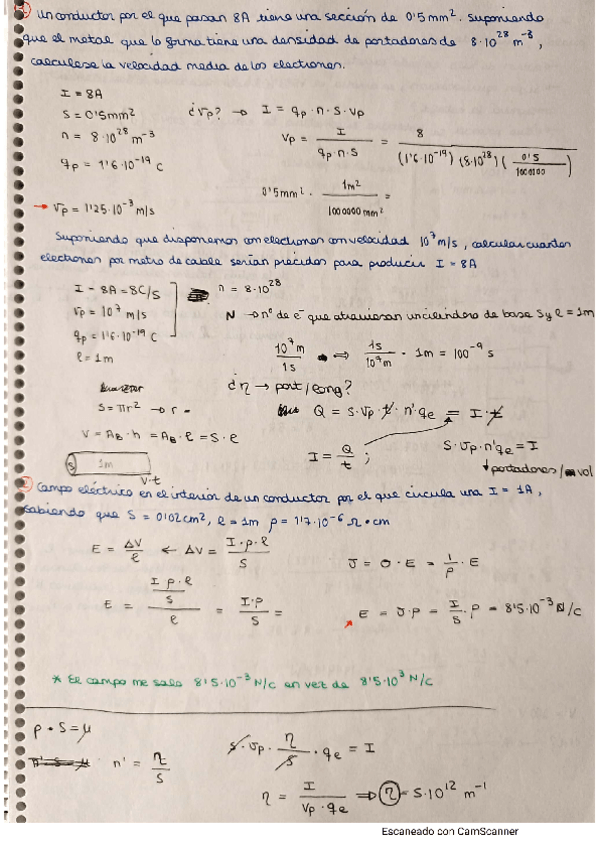 1) Un conductor por el que pasan 8A tiene una sección de 0'5mm². Suponiendo
que el metal que lo forma tiene una densidad de portadores de 8·10²⁸ m⁻³,
calculese la velocidad media de los electrones.
I = 8A
S = 0'5mm²
n = 8·10²⁸ m⁻³
qp = 1'6·10⁻¹⁹ C
¿vp? → I = qp · n · S · vp
vp = I / (qp · n · S) = 8 / ((1'6·10⁻¹⁹) (8·10²⁸) (0'5 / 1000000))
0'5mm² · 1m² / 1000000 mm² =
→ vp = 1'25·10⁻³ m/s
Suponiendo que disponemos con electrones con velocidad 10⁷ m/s, calcular cuantos
electrones por metro de cable serian précidos para producir I = 8A
I = 8A = 8C/s
vp = 10⁷ m/s
qp = 1'6·10⁻¹⁹ C
l = 1m
n = 8·10²⁸
N → nº de e⁻ que atraviesan un cilindro de base S y l = 1m
10⁷m / 1s ⇔ 1s / 10⁷m · 1m = 100⁻⁹ s
¿η → port/long?
S = πr² → r =
Q = S·vp·t·n'·qe = I·t
V = AB·h = AB·l = S·l
I = Q / t ;
S·vp·n'qe = I
↓ portadores/vol
S 1m
v·t
2) Campo eléctrico en el interior de un conductor por el que circula una I = 1A,
sabiendo que S = 0'02cm², l = 1m ρ = 1'7·10⁻⁶ Ω·cm
E = ΔV / l ← ΔV = I·ρ·l / S
J = σ·E = 1/ρ · E
E = (I·ρ·l / S) / l = I·ρ / S =
E = J·ρ = I/S · ρ = 8'5·10⁻³ N/C
* El campo me sale 8'5·10⁻³ N/C en vez de 8'5·10³ N/C
ρ · S = μ
n' = η / S
S·vp · η / S · qe = I
η = I / (vp·qe) ⇒ η = 5·10¹² m⁻¹
Escaneado con CamScanner